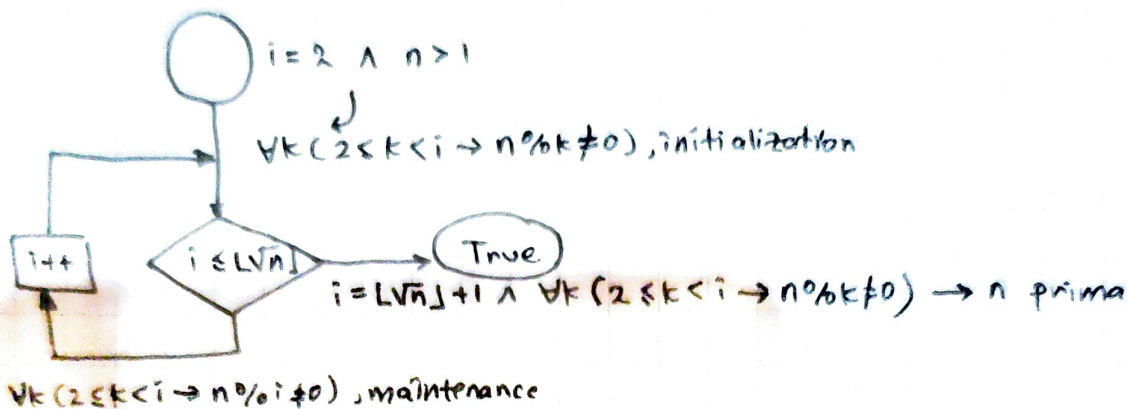 i = 2 ∧ n > 1
∀k (2 ≤ k < i → n % k ≠ 0), initialization
i++
i ≤ ⌊√n⌋
True
i = ⌊√n⌋ + 1 ∧ ∀k (2 ≤ k < i → n % k ≠ 0) → n prima
∀k (2 ≤ k < i → n % i ≠ 0), maintenance